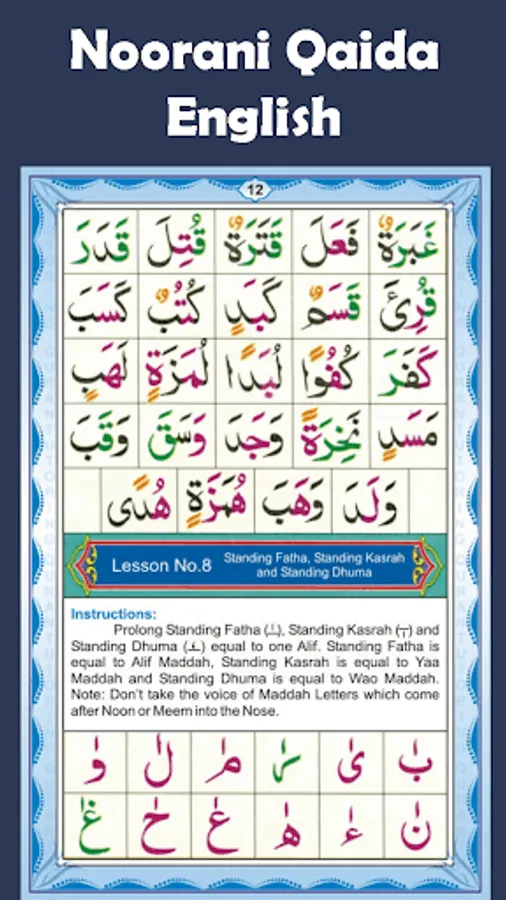 Noorani Qaida
English
12
غَبَرَةٌ فَعَلَ قَتَرَةٌ قُتِلَ قَدَرَ
قُرِئَ قَسَمٌ كَبَدٍ كُتُبٌ كَسَبَ
كَفَرَ كُفُوًا لُبَدًا لُمَزَةٍ لَهَبٍ
مَسَدٍ نَخِرَةً وَجَدَ وَسَقَ وَقَبَ
وَلَدَ وَهَبَ هُمَزَةٍ هُدًى
Lesson No.8
Standing Fatha, Standing Kasrah
and Standing Dhuma
Instructions:
Prolong Standing Fatha (ــٰـ), Standing Kasrah (ــٖـ) and
Standing Dhuma (ــٗـ) equal to one Alif. Standing Fatha is
equal to Alif Maddah, Standing Kasrah is equal to Yaa
Maddah and Standing Dhuma is equal to Wao Maddah.
Note: Don't take the voice of Maddah Letters which come
after Noon or Meem into the Nose.
بٰ یٰ رٰ مٰ لٰ وٰ
نٰ ءٰ هٰ عٰ حٰ غٰ